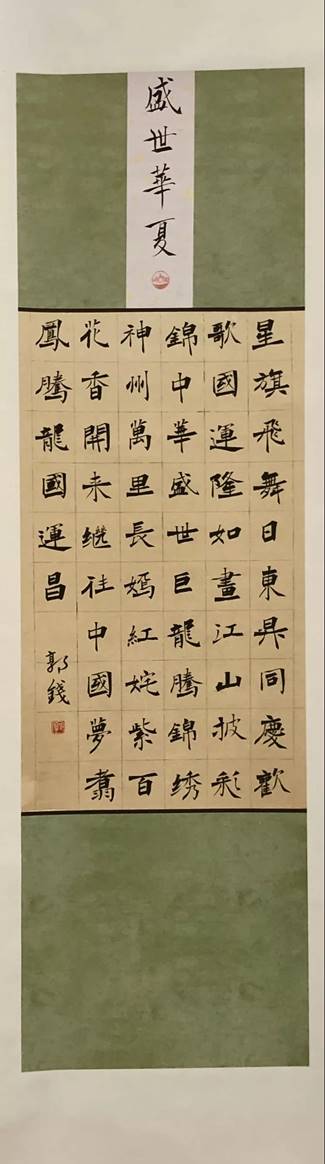 盛世華夏
星旗飛舞日東昇同慶歡
歌國運隆如畫江山披彩
錦中華盛世巨龍騰錦绣
神州萬里長嫣紅姹紫百
花香開来继往中國夢翥
鳳騰龍國運昌
郭錢